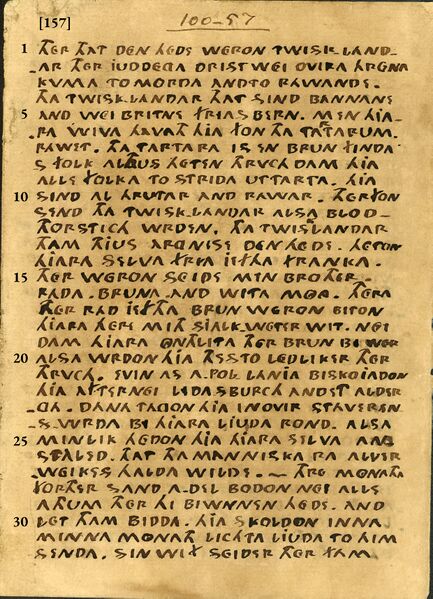 [157] 100-57
1 THER THAT DEN HEDE WERON TWISK.LAND_
AR THER IUDDEGA DRIST WEI OVIRA HRENA
KVMA TO MORDA AND TO RAWANDE.
THA TWISK.LANDAR THAT SIND BANNANE
5 AND WEI BRITNE FRIAS BERN. MEN HIA_
RA WIVA HAVATH HIA FON THA TARTARUM.
RAWET. THA TARTARA IS EN BRUN FINDA_
S FOLK ALTHUS HETEN THRVCH DAM HIA
ALLE FOLKA TO STRIDA UTTARTA. HIA
10 SIND AL HRUTAR AND RAWAR. THERFON
SEND THA TWISK.LANDAR ALSA BLOD_
THORSTICH WRDEN. THA TWISLANDAR
THAM THIUS ARGNISE DEN HEDE. HETON
HIARA SELVA FRIA IEFTHA FRANKA.
15 THER WERON SEIDE MIN BROTHER.
RADA. BRUNA AND WITA MONG. THERA
THER RAD IEFTHA BRUN WERON BITON
HIARA HERE MITH SIALK.WETER WIT. NEI
DAM HIARA ONTHLITA THER BRUN BI WER
20 ALSA WRDON HIA THESSTO LEDLIKER THER
THRVCH. EVIN AS A.POL.LANIA BISKOIADON
HIA AFTERNEI LIDASBURCH AND ET ALDER
GA. DANA TAGON HIA IN OVIR STAVEREN_
S.WRDA BI HIARA LIUDA ROND. ALSA
25 MINLIK HEDON HIA HIARA SELVA AN_
STALED. THAT THA MANNISKA RA ALLER
WEIKES HALDA WILDE. THRE MONATHA
FORTHER SAND A.DEL BODON NEI ALLE
ATHUM THER HI BIWNNEN HEDE. AND
30 LET THAM BIDDA. HIA SKOLDON INNA
MINNA MONATH LICHTA LIUDA TO HIM
SENDA. SIN WIF SEIDER THER THAM